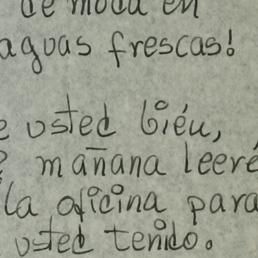 de moda en
aguas frescas!
e usted biéu,
mañana leeré
la oficina para
usted tenido.